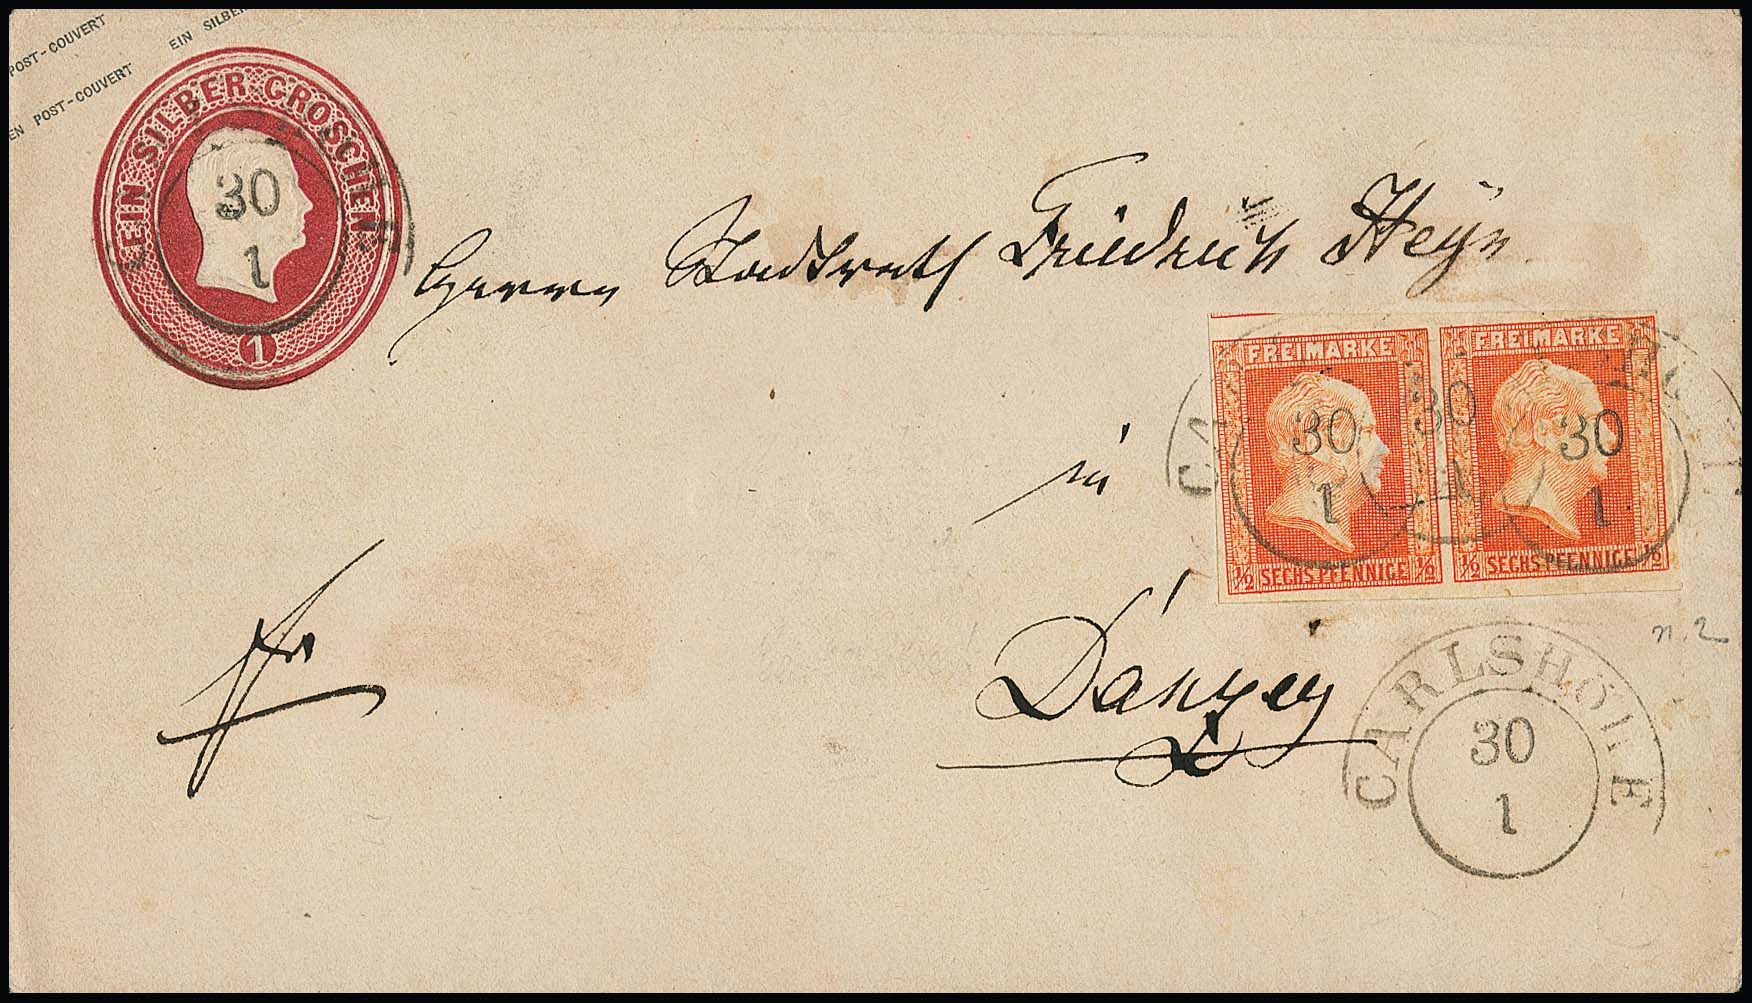 POST-COUVERT
EIN SILBER
EN POST-COUVERT
EIN SILBER GROSCHEN
30
1
1
Herrn Stadtrath Friedrich Heyn
FREIMARKE FREIMARKE
30 30 30
1 1 1
½ SECHS PFENNIGE ½ ½ SECHS PFENNIGE ½
in
n.2
fr
Danzig
CARLSHÖFE
30
1